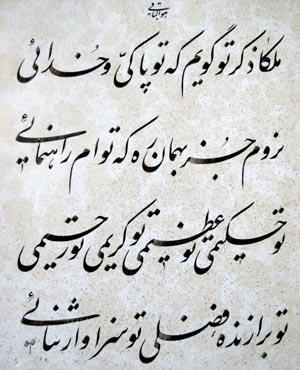 هوالباقی
ملکا ذکر تو گویم که تو پاکی و خدائی
نروم جز بهمان ره که توام راهنمائی
تو حکیمی تو عظیمی تو کریمی تو رحیمی
تو برازنده فضلی تو سزاوار ثنائی